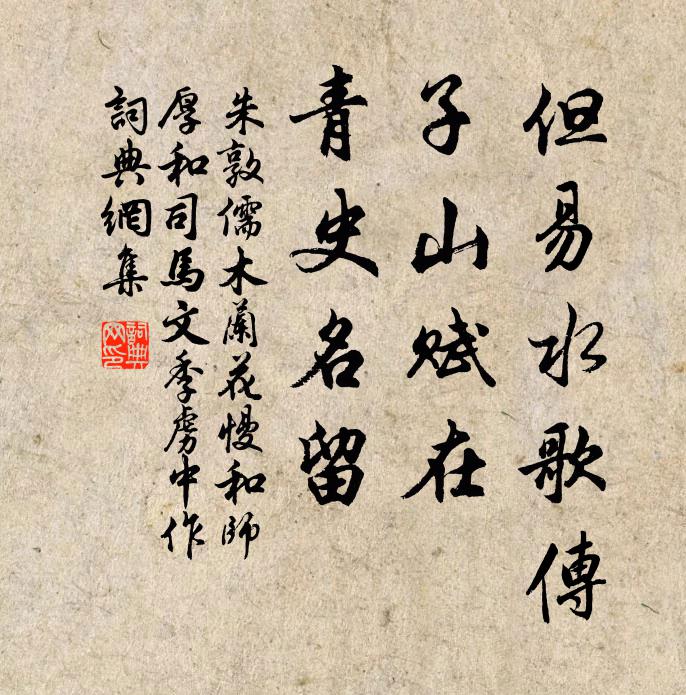 但易水歌傳
子山賦在
青史名留
朱敦儒木蘭花慢和師
厚和司馬文季虜中作
詞典網集
詞典网印